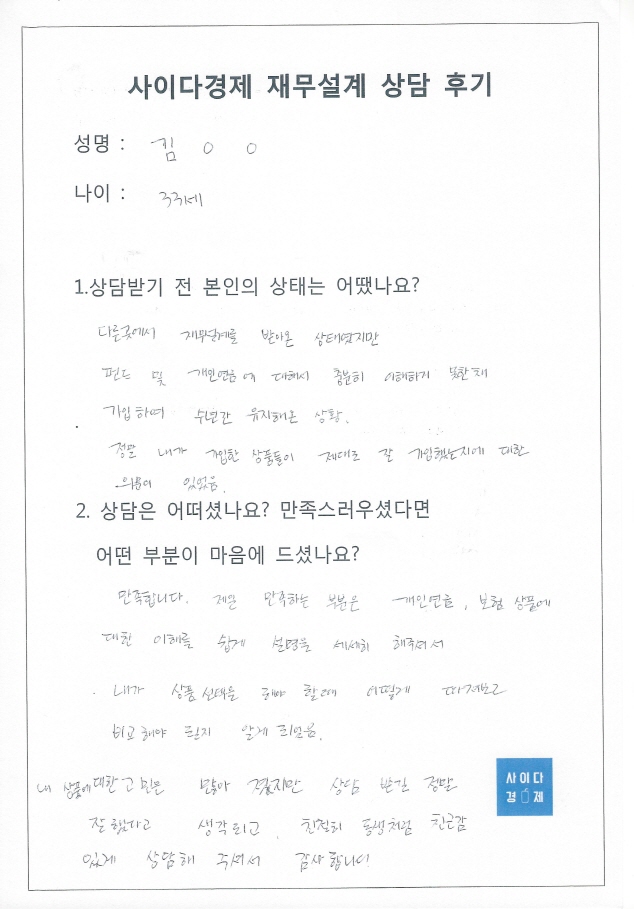 사이다경제 재무설계 상담 후기
성명 : 김 ○ ○
나이 : 33세
1.상담받기 전 본인의 상태는 어땠나요?
다른곳에서 재무설계를 받아온 상태였지만
펀드 및 개인연금에 대해서 충분히 이해하지 못한채
가입하여 수년간 유지해온 상황.
정말 내가 가입한 상품들이 제대로 잘 가입했는지에 대한
의문이 있었음.
2. 상담은 어떠셨나요? 만족스러우셨다면
어떤 부분이 마음에 드셨나요?
만족합니다. 제일 만족하는 부분은 개인연금, 보험 상품에
대한 이해를 쉽게 설명을 세세히 해주셔서
내가 상품 선택을 해야 할때 어떻게 따져보고
비교해야 될지 알게 되었음.
내 상품에 대한 고민은 많아 졌지만 상담 받길 정말
잘 했다고 생각되고, 친절히 동생처럼 친근감
있게 상담해 주셔서 감사합니다!
사이다
경제